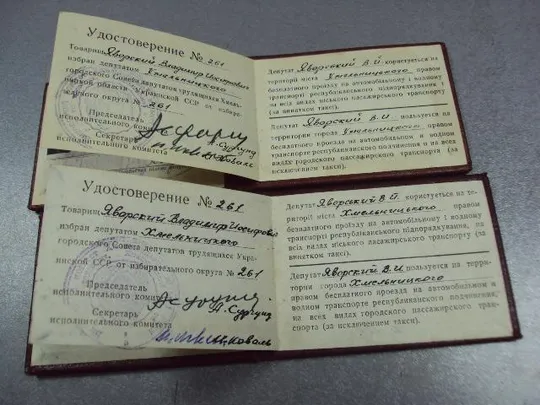 Удостоверение № 261
Товарищ Яворский Владимир Иосифович
избран депутатом Хмельницкого
городского Совета депутатов трудящихся Хмель-
ницкой области Украинской ССР от избира-
тельного округа № 261
Председатель
исполнительного комитета
А. Сургунд
Секретарь
исполнительного комитета
Коваль
Депутат Яворский В.Й. користується на
території міста Хмельницького правом
безплатного проїзду на автомобільному і водному
транспорті республіканського підпорядкування, і
на всіх видах міського пасажирського транспорту (за
винятком таксі).
Депутат Яворский В.И. пользуется на
территории города Хмельницкого правом
бесплатного проезда на автомобильном и водном
транспорте республиканского подчинения и на всех
видах городского пассажирского транспорта (за
исключением такси).
Удостоверение № 261
Товарищ Яворский Владимир Иосифович
избран депутатом Хмельницкого
городского Совета депутатов трудящихся Укра-
инской ССР от избирательного округа № 261
Председатель
исполнительного комитета
А. Сургунд
Секретарь
исполнительного комитета
Коваль
Депутат Яворский В.Й. користується на те-
риторії міста Хмельницького правом
безплатного проїзду на автомобільному і водному транс-
порті республіканського підпорядкування, на
всіх видах міського пасажирського транспорту (за
винятком таксі).
Депутат Яворский В.И. пользуется на терри-
тории города Хмельницкого
правом бесплатного проезда на автомобильном и
водном транспорте республиканского подчинения,
на всех видах городского пассажирского транс-
порта (за исключением такси).